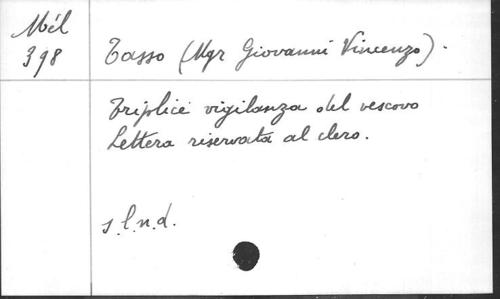 Mél
398
Tasso (Mgr Giovanni Vincenzo).
Triplice vigilanza del vescovo
Lettera riservata al clero.
s.l.n.d.